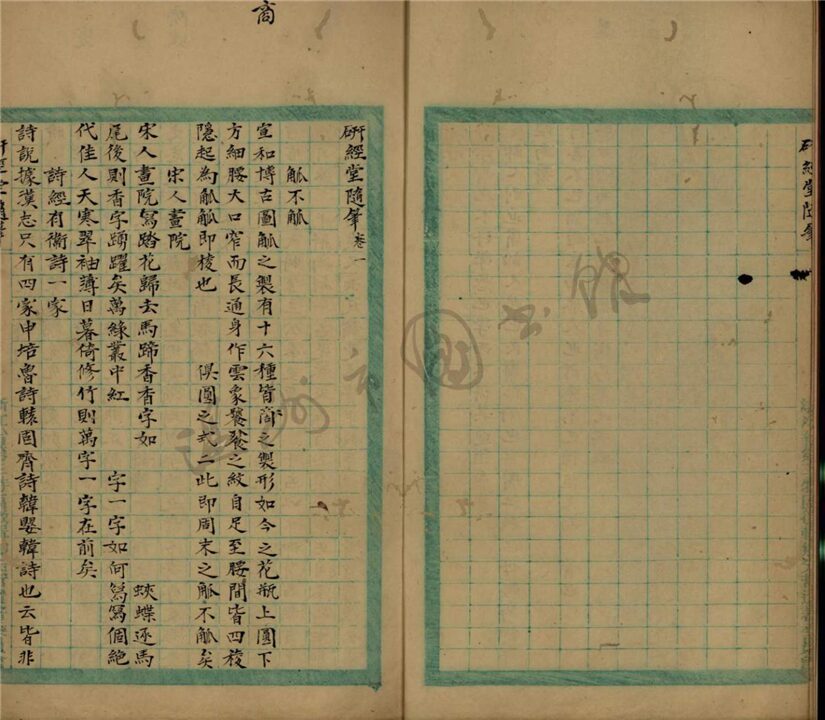 商
研經堂隨筆卷一
觚不觚
宣和博古圖觚之製有十六種皆商之製形如今之花瓶上圓下
方細腰大口窄而長通身作雲象饕餮之紋自足至腰間皆四稜
隱起為觚觚即稜也 俱圓之式二此即周末之觚不觚矣
宋人畫院
宋人畫院寫踏花歸去馬蹄香香字如 蛺蝶逐馬
尾後則香字踴躍矣萬綠叢中紅 字一字如何寫寫個絕
代佳人天寒翠袖薄日暮倚修竹則萬字一字在前矣
詩經有衛詩一家
詩說據漢志只有四家申培魯詩轅固齊詩韓嬰韓詩也云皆非
研經堂隨筆